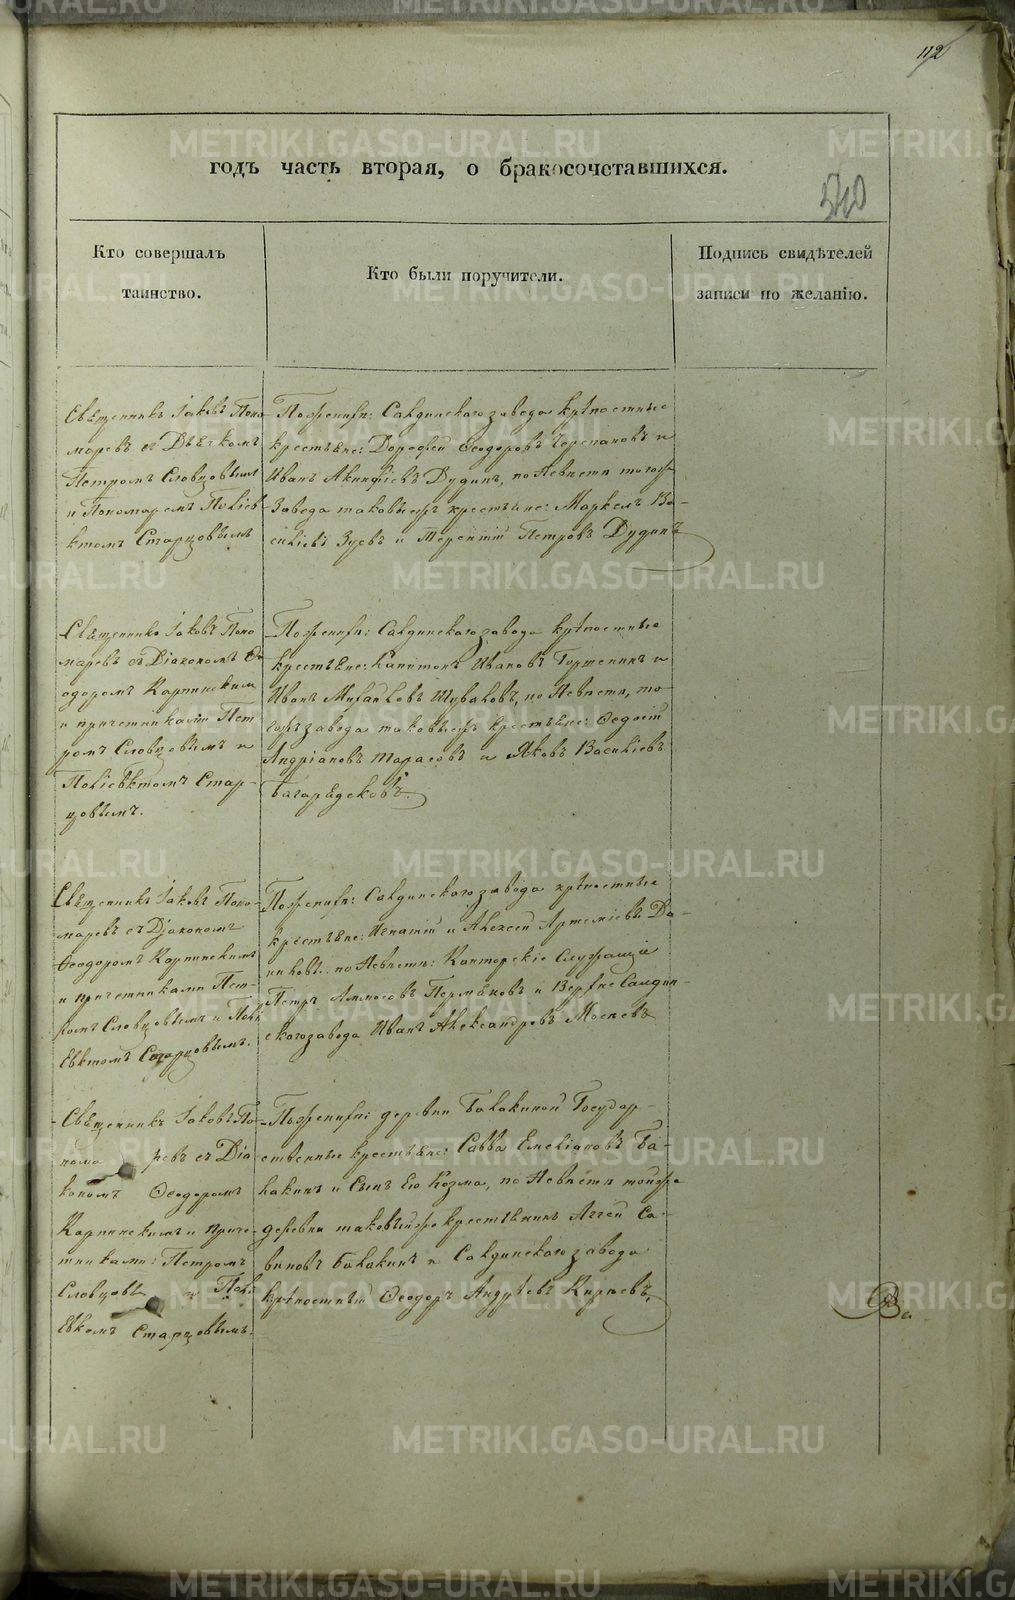 112
годъ часть вторая, о бракосочетавшихся.
540
Кто совершалъ
таинство.
Кто были поручители.
Подпись свидѣтелей
записи по желанію.
Священникъ Іаковъ Поно
маревъ съ Дьячкомъ
Петромъ Словцовымъ
и Пономаремъ Поліев
ктомъ Старцовымъ
По женихѣ: Салдинскаго завода крѣпостные
крестьяне: Дорофей Ѳеодоровъ Черепановъ и
Иванъ Акинфіевъ Дудинъ, по невѣстѣ тогожъ
Завода таковыежъ крестьяне: Маркелъ Ва-
силіевъ Зуевъ и Терентій Петровъ Дудинъ
Священникъ Іаковъ Поно
маревъ съ Діакономъ Ѳе
одоромъ Карпинскимъ
и причетниками Пет
ромъ Словцовымъ и
Поліевктомъ Стар-
цовымъ.
По женихѣ: Салдинскаго завода крѣпостные
крестьяне: Капитонъ Ивановъ и
Иванъ Михайловъ Шуваловъ, по невѣстѣ, то-
гожъ завода таковыежъ крестьяне: Ѳедотій
Андріановъ Тарасовъ и Яковъ Василіевъ
Священникъ Іаковъ Поно-
маревъ съ Діакономъ
Ѳеодоромъ Карпинскимъ
и причетниками Пет-
ромъ Словцовымъ и Полі
Евктомъ Старцовымъ.
По женихѣ: Салдинскаго завода крѣпостные
крестьяне: Игнатій и Алексѣй Артеміевы Да-
ниловы по невѣстѣ: Конторскіе Служащіе
Петръ Пермяковъ и Верхне Салдин-
скаго завода Иванъ Александровъ Мосеевъ
Священникъ Іаковъ По-
нома ревъ съ Діа
кономъ Ѳеодоромъ
Карпинскимъ и Приче-
тниками: Петромъ
Словцовы и Полі
Евкомъ Старцовымъ.
По женихѣ: деревни Балакиной Государ-
ственные крестьяне: Савва Емеліановъ Ба-
лакинъ и Сынъ Его Козма, по невѣстѣ тойже
деревни таковыйже крестьянинъ Аггей Са-
виновъ Балакинъ и Салдинскаго завода
крѣпостный Ѳеодоръ Андреевъ
Ва
METRIKI.GASO-URAL.RU